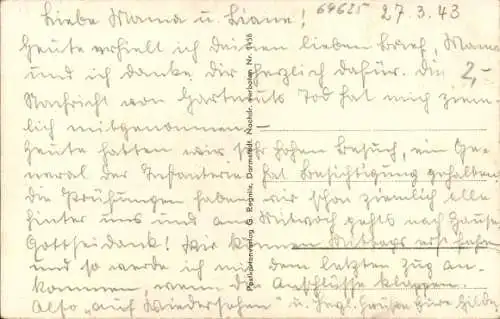 Liebe Mama u. Liane! 64625 27.3.43
Heute erhielt ich deinen lieben Brief, Mama
und ich danke dir herzlich dafür. Die 2,-
Nachricht von Hartmuts Tod hat mich ziem
lich mitgenommen. –
Heute hatten wir sehr hohen Besuch, ein Ge-
neral der Infanterie hat Besichtigung gehalten
Die Prüfungen haben wir schon ziemlich alle
hinter uns und am Mittwoch gehts nach Hause
Gottseidank! Wir können Mittags erst fahren
und so werde ich mit dem letzten Zug an-
kommen, wenn die Anschlüsse klappen.
Also "auf Wiedersehen" u. herzl. Grüße Eure Hilde
Postkartenverlag G. Regnila, Darmstadt. Nachdr. verboten. Nr.